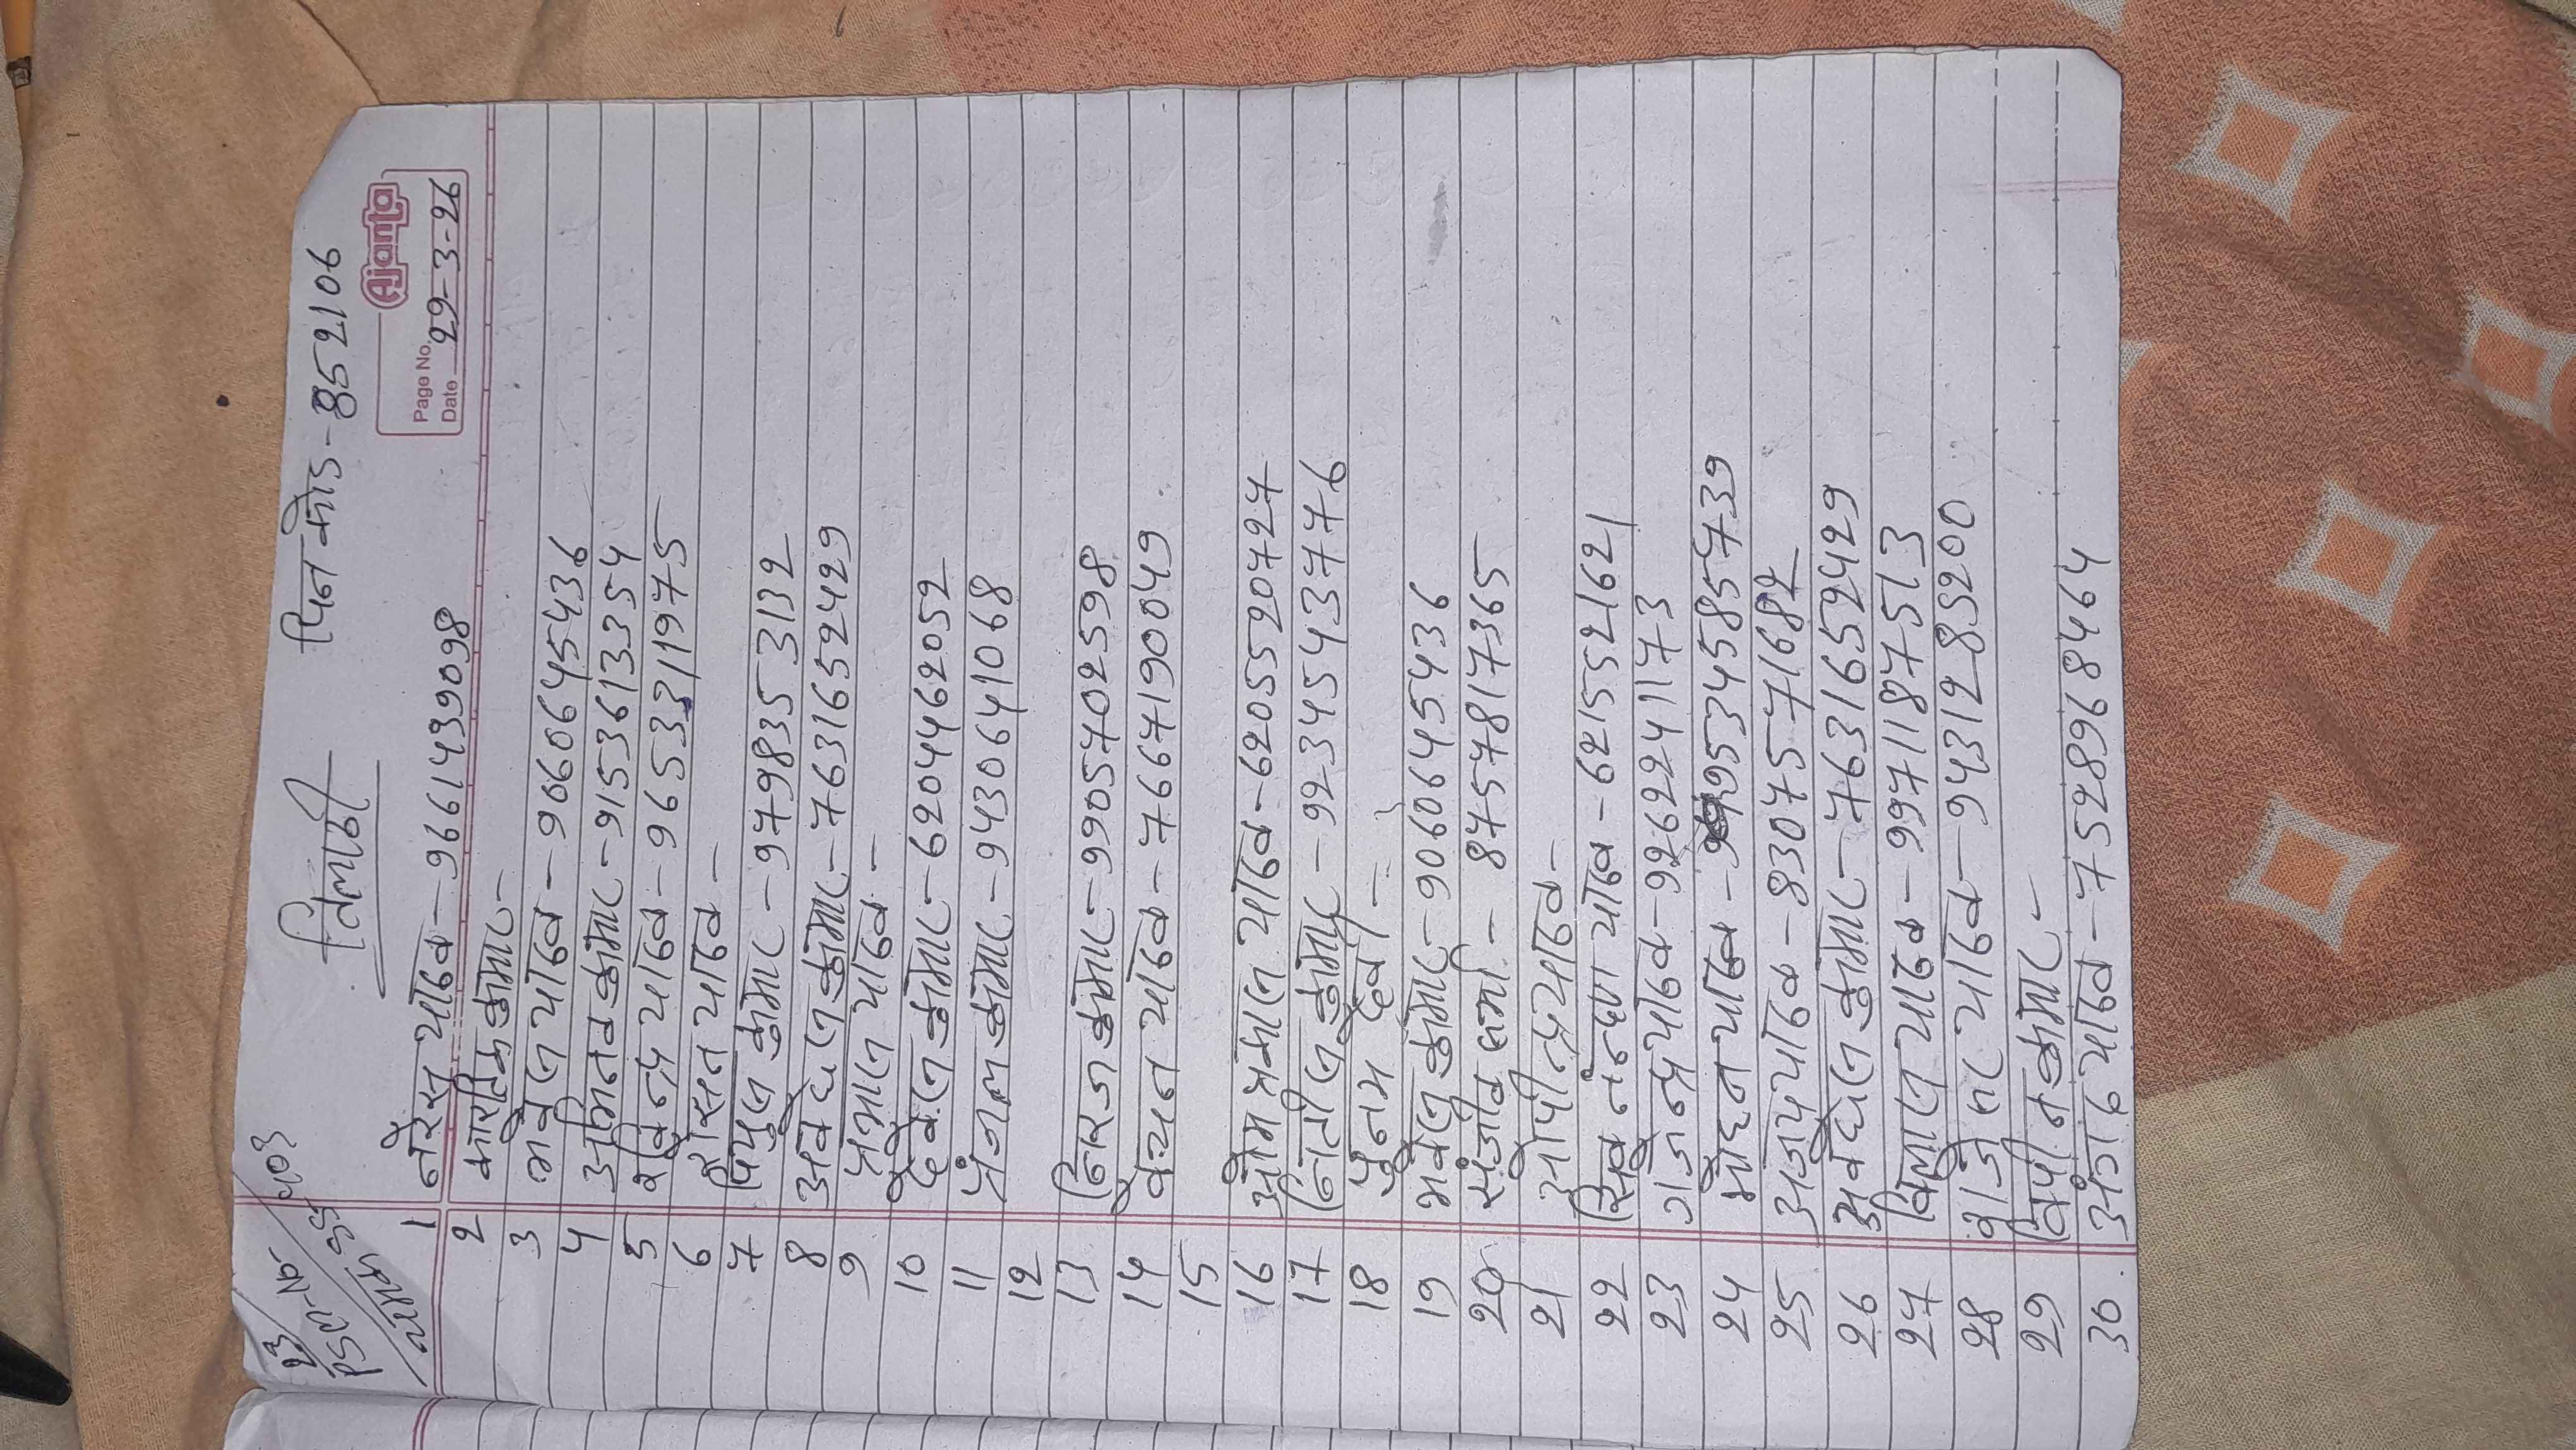 तिलाठी पिन कोड - 852106
Ajanta
Page No.
Date 29-3-26
1 नरेस यादव - 9661439098
2 कारतिक कुमार -
3 मकेश यादव - 9060645436
4 अमित कुमार - 9153613354
5 रविन्द्र यादव - 9653311975
6 यादव -
7 कुमार - 9798353132
8 अवधेश कुमार - 7631652429
9 यादव -
10 कुमार - 6204462052
11 कुमार - 9430641068
12
13 निरज कुमार - 9905702598
14 यादव - 7667190049
15
16 ओम प्रकाश यादव - 6205520724
17 नितीश कुमार - 9234543776
18 पुनम देवी -
19 मकेश कुमार - 9060645436
20 संजीव शर्मा - 8757817365
21 यादव -
22 सिव नंन्दण यादव - 6215521621
23 गजेन्द्र यादव - 9262241173
24 मोहन यादव - 9534585739
25 अजय यादव - 8307571682
26 अवधेश कुमार - 7631652429
27 विकाश यादव - 9971187513
28 यादव - 9431285200
29 विपीन कुमार -
30 अंगद यादव - 7528968464